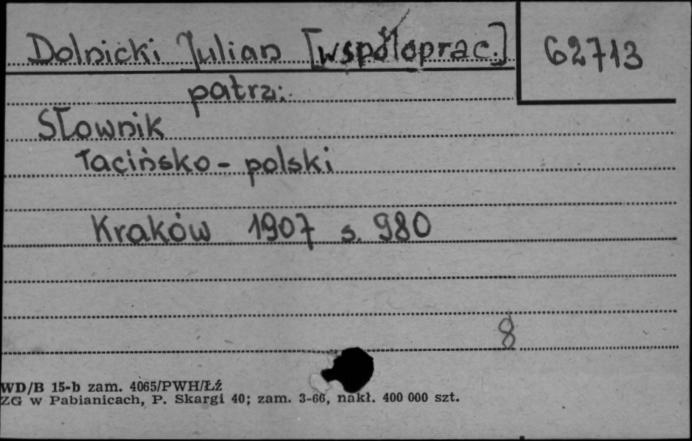 Dolnicki Julian [współoprac.] 62713
patrz:
Słownik
łacińsko - polski
Kraków 1907 s. 980
8
WD/B 15-b zam. 4065/PWH/Łź
ZG w Pabianicach, P. Skargi 40; zam. 3-66, nakł. 400 000 szt.